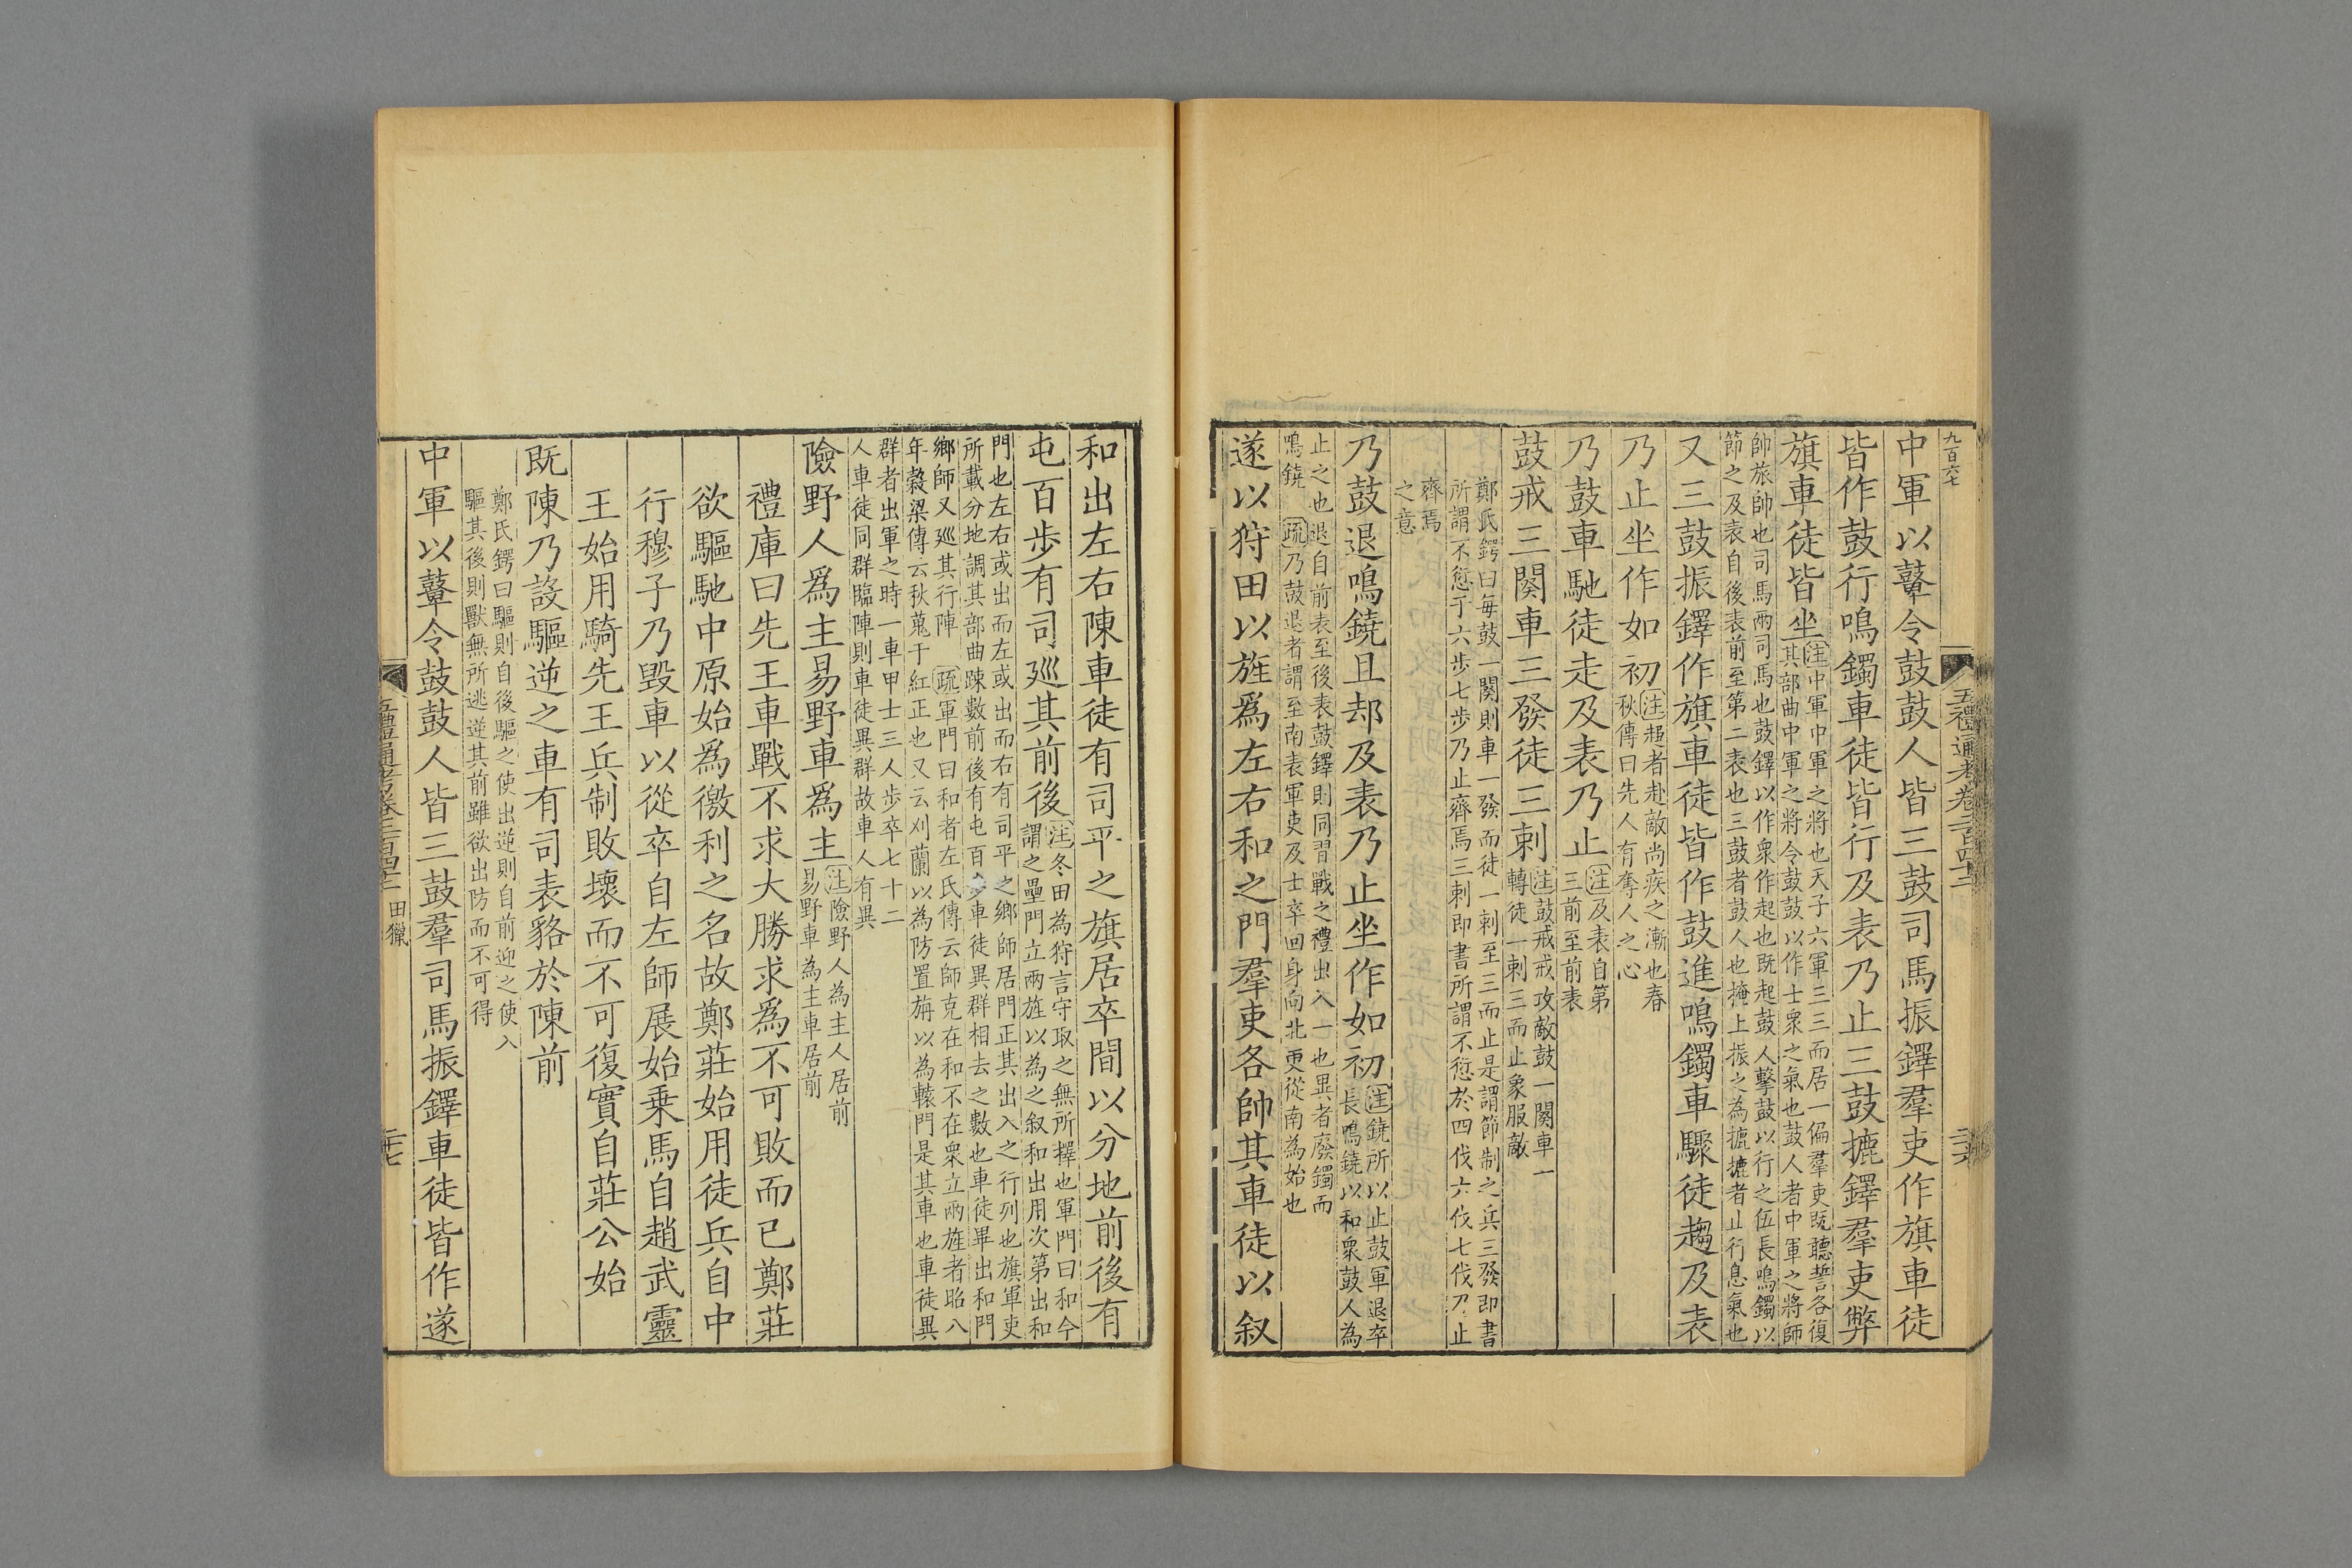 九百六七
五禮通考卷二百四十二
二十六
中軍以鼙令鼓鼓人皆三鼓司馬振鐸羣吏作旗車徒
皆作鼓行鳴鐲車徒皆行及表乃止三鼓摝鐸羣吏弊
旗車徒皆坐注中軍中軍之將也天子六軍三三而居一偏羣吏既聽誓各復
其部曲中軍之將令鼓鼓以作士衆之氣也鼓人者中軍之將師
帥旅帥也司馬兩司馬也鼓鐸以作衆作起也既起鼓人擊鼓以行之伍長鳴鐲以
節之及表自後表前至第二表也三鼓者鼓人也掩上振之為摝摝者止行息氣也
又三鼓振鐸作旗車徒皆作鼓進鳴鐲車驟徒趨及表
乃止坐作如初注趨者赴敵尚疾之漸也春
秋傳曰先人有奪人之心
乃鼓車馳徒走及表乃止注及表自第
三前至前表
鼓戒三闋車三發徒三刺注鼓戒戒攻敵鼓一闋車一
轉徒一刺三而止象服敵
鄭氏鍔曰每鼓一闋則車一發而徒一刺至三而止是謂節制之兵三發即書
所謂不愆于六步七步乃止齊焉三刺即書所謂不愆於四伐六伐七伐乃止
齊焉
之意
乃鼓退鳴鐃且却及表乃止坐作如初注鐃所以止鼓軍退卒
長鳴鐃以和衆鼓人為
止之也退自前表至後表鼓鐸則同習戰之禮出入一也異者廢鐲而
鳴鐃 疏乃鼓退者謂至南表軍吏及士卒回身向北更從南為始也
遂以狩田以旌爲左右和之門羣吏各帥其車徒以叙
和出左右陳車徒有司平之旗居卒間以分地前後有
屯百步有司廵其前後注冬田為狩言守取之無所擇也軍門曰和今
謂之壘門立兩旌以為之叙和出用次第出和
門也左右或出而左或出而右有司平之鄉師居門正其出入之行列也旗軍吏
所載分地調其部曲疎數前後有屯百步車徒異群相去之數也車徒畢出和門
鄉師又廵其行陣 疏軍門曰和者左氏傳云師克在和不在衆立兩旌者昭八
年穀梁傳云秋蒐于紅正也又云刈蘭以為防置旃以為轅門是其車也車徒異
群者出軍之時一車甲士三人步卒七十二
人車徒同群臨陣則車徒異群故車人有異
險野人爲主易野車爲主注險野人為主人居前
易野車為主車居前
禮庫曰先王車戰不求大勝求爲不可敗而已鄭莊
欲驅馳中原始爲徼利之名故鄭莊始用徒兵自中
行穆子乃毀車以從卒自左師展始乗馬自趙武靈
王始用騎先王兵制敗壞而不可復實自莊公始
既陳乃設驅逆之車有司表貉於陳前
鄭氏鍔曰驅則自後驅之使出逆則自前迎之使入
驅其後則獸無所逃逆其前雖欲出防而不可得
中軍以鼙令鼓鼓人皆三鼓羣司馬振鐸車徒皆作遂
五禮通考卷二百四十二 田獵
二十七